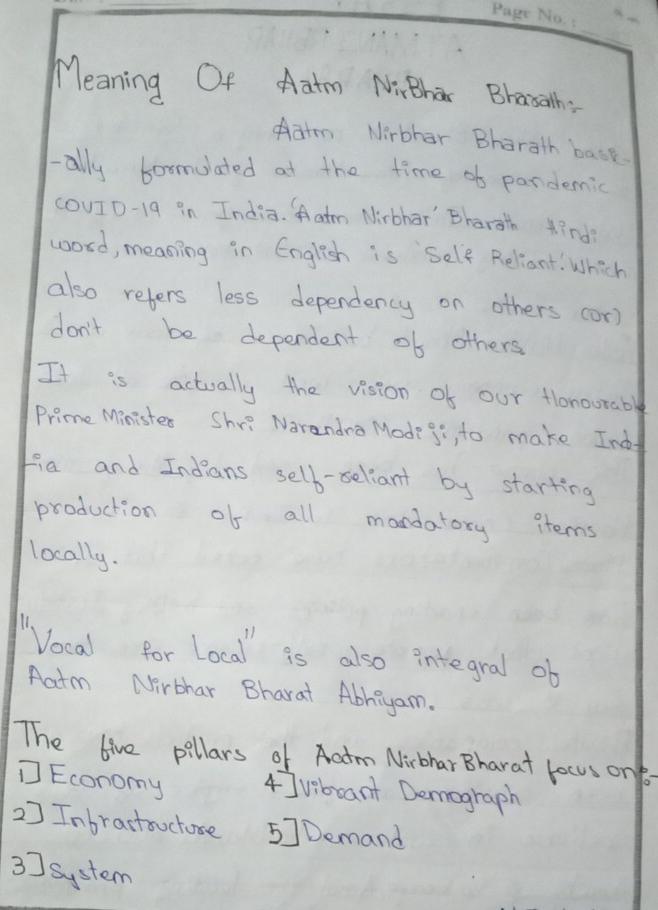 Page No. :
Meaning Of Aatm NirBhar Bharath:-
Aatm Nirbhar Bharath basic-
-ally formulated at the time of pandemic
COVID-19 in India. 'Aatm Nirbhar' Bharath Hindi
word, meaning in English is 'Self Reliant'. Which
also refers less dependency on others (or)
don't be dependent of others.
It is actually the vision of our Honourable
Prime Minister Shri Narendra Modi ji, to make Ind-
-ia and Indians self-reliant by starting
production of all mandatory items
locally.
"Vocal for Local" is also integral of
Aatm Nirbhar Bharat Abhiyam.
The five pillars of Aatm Nirbhar Bharat focus on:-
1] Economy 4] Vibrant Demograph
2] Infrastructure 5] Demand
3] System